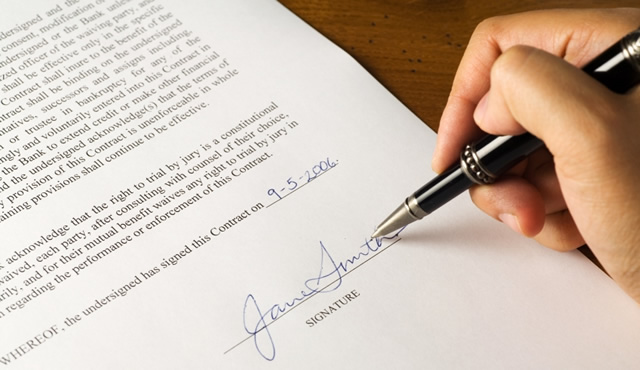 undersigned and the
consent, modification or
undersigned or the Bank unless
ized officer of the waiving party, and
shall be effective only in the specific
Contract shall inure to the benefit of the
tract shall be binding on the undersigned
tatives, successors and assigns including,
or trustee in bankruptcy for any of the
ngly and voluntarily entered into this Contract in
the Bank to extend credit or make other financial
d the undersigned acknowledge(s) that the terms of
y provision of this Contract is unenforceable in whole
aining provisions shall continue to be effective.
acknowledge that the right to trial by jury is a constitutional
waived, each party, after consulting with counsel of their choice,
arily, and for their mutual benefit waives any right to trial by jury in
n regarding the performance or enforcement of this Contract.
WHEREOF, the undersigned has signed this Contract on 9-5-2006.
Jane Smith
SIGNATURE